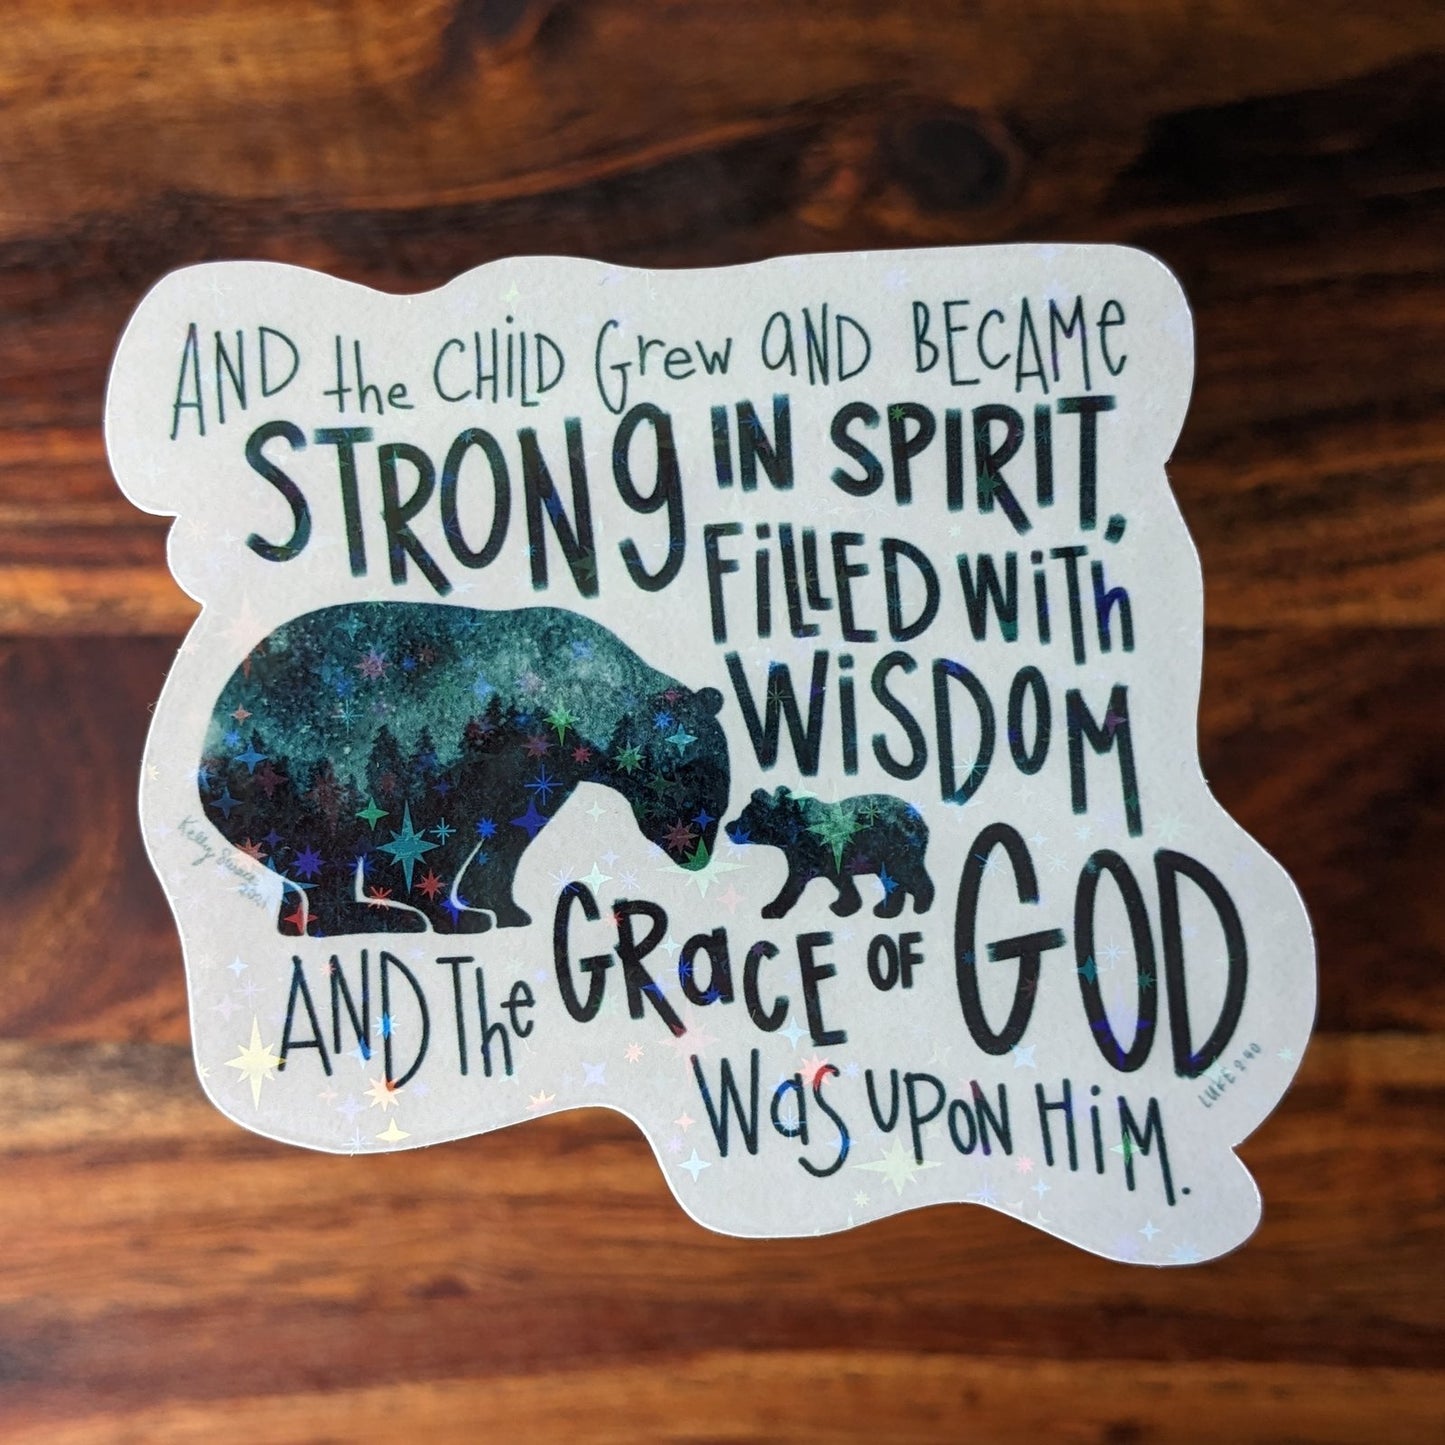 AND the CHiLD Grew aND AND BECAME
STRONg IN SPIRIT,
FiLLED WiTh
WiSDOM
AND The GRaCE OF GOD
Was UPON HiM.
LUKE 2:40
2021